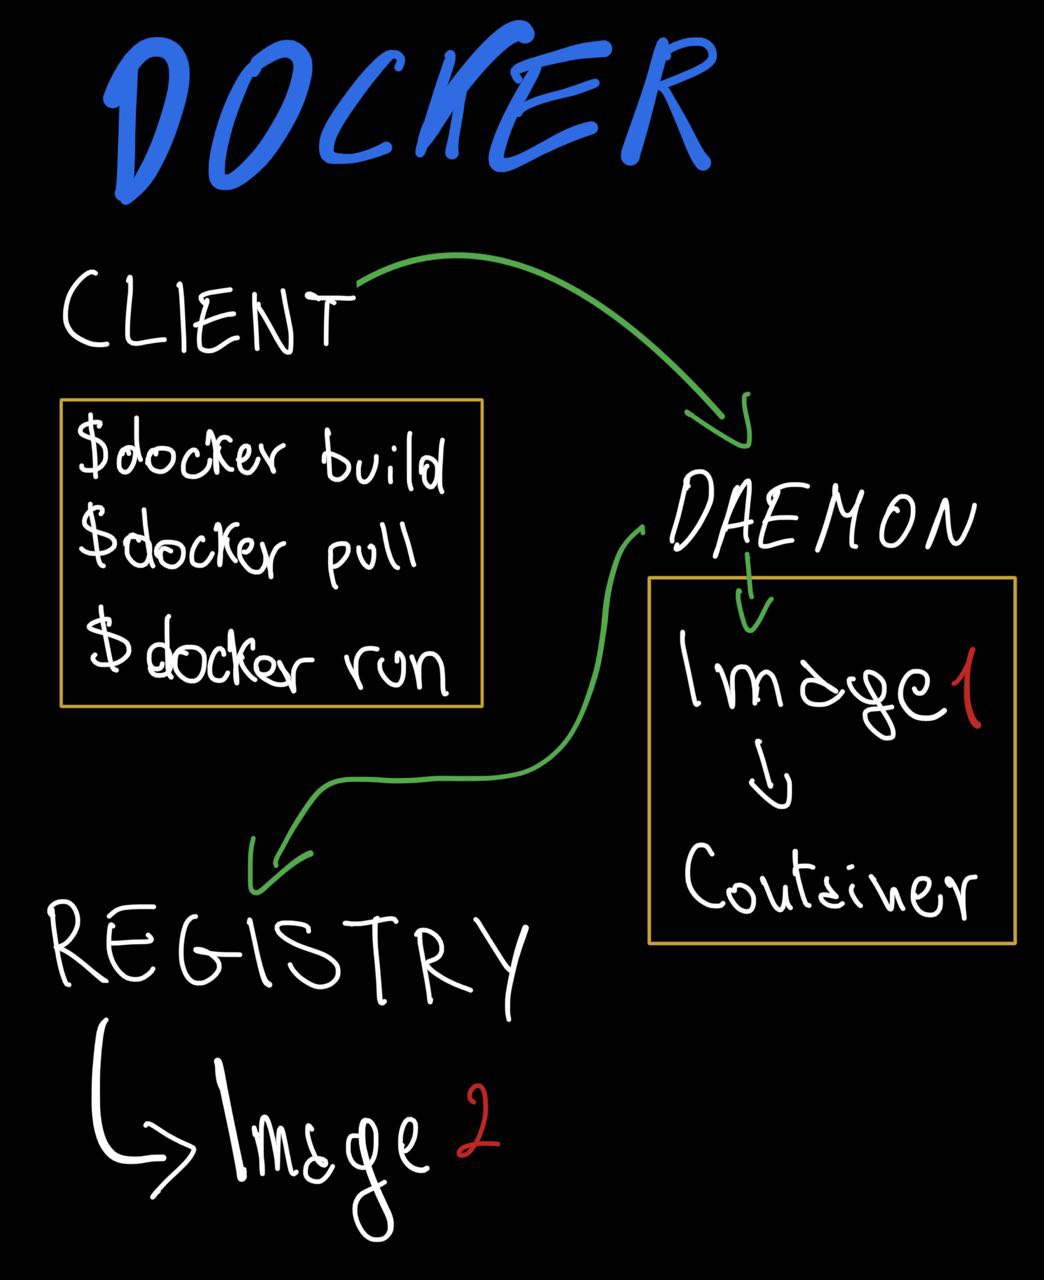 DOCKER
CLIENT
$docker build
$docker pull
$docker run
DAEMON
Image 1
Container
REGISTRY
Image 2